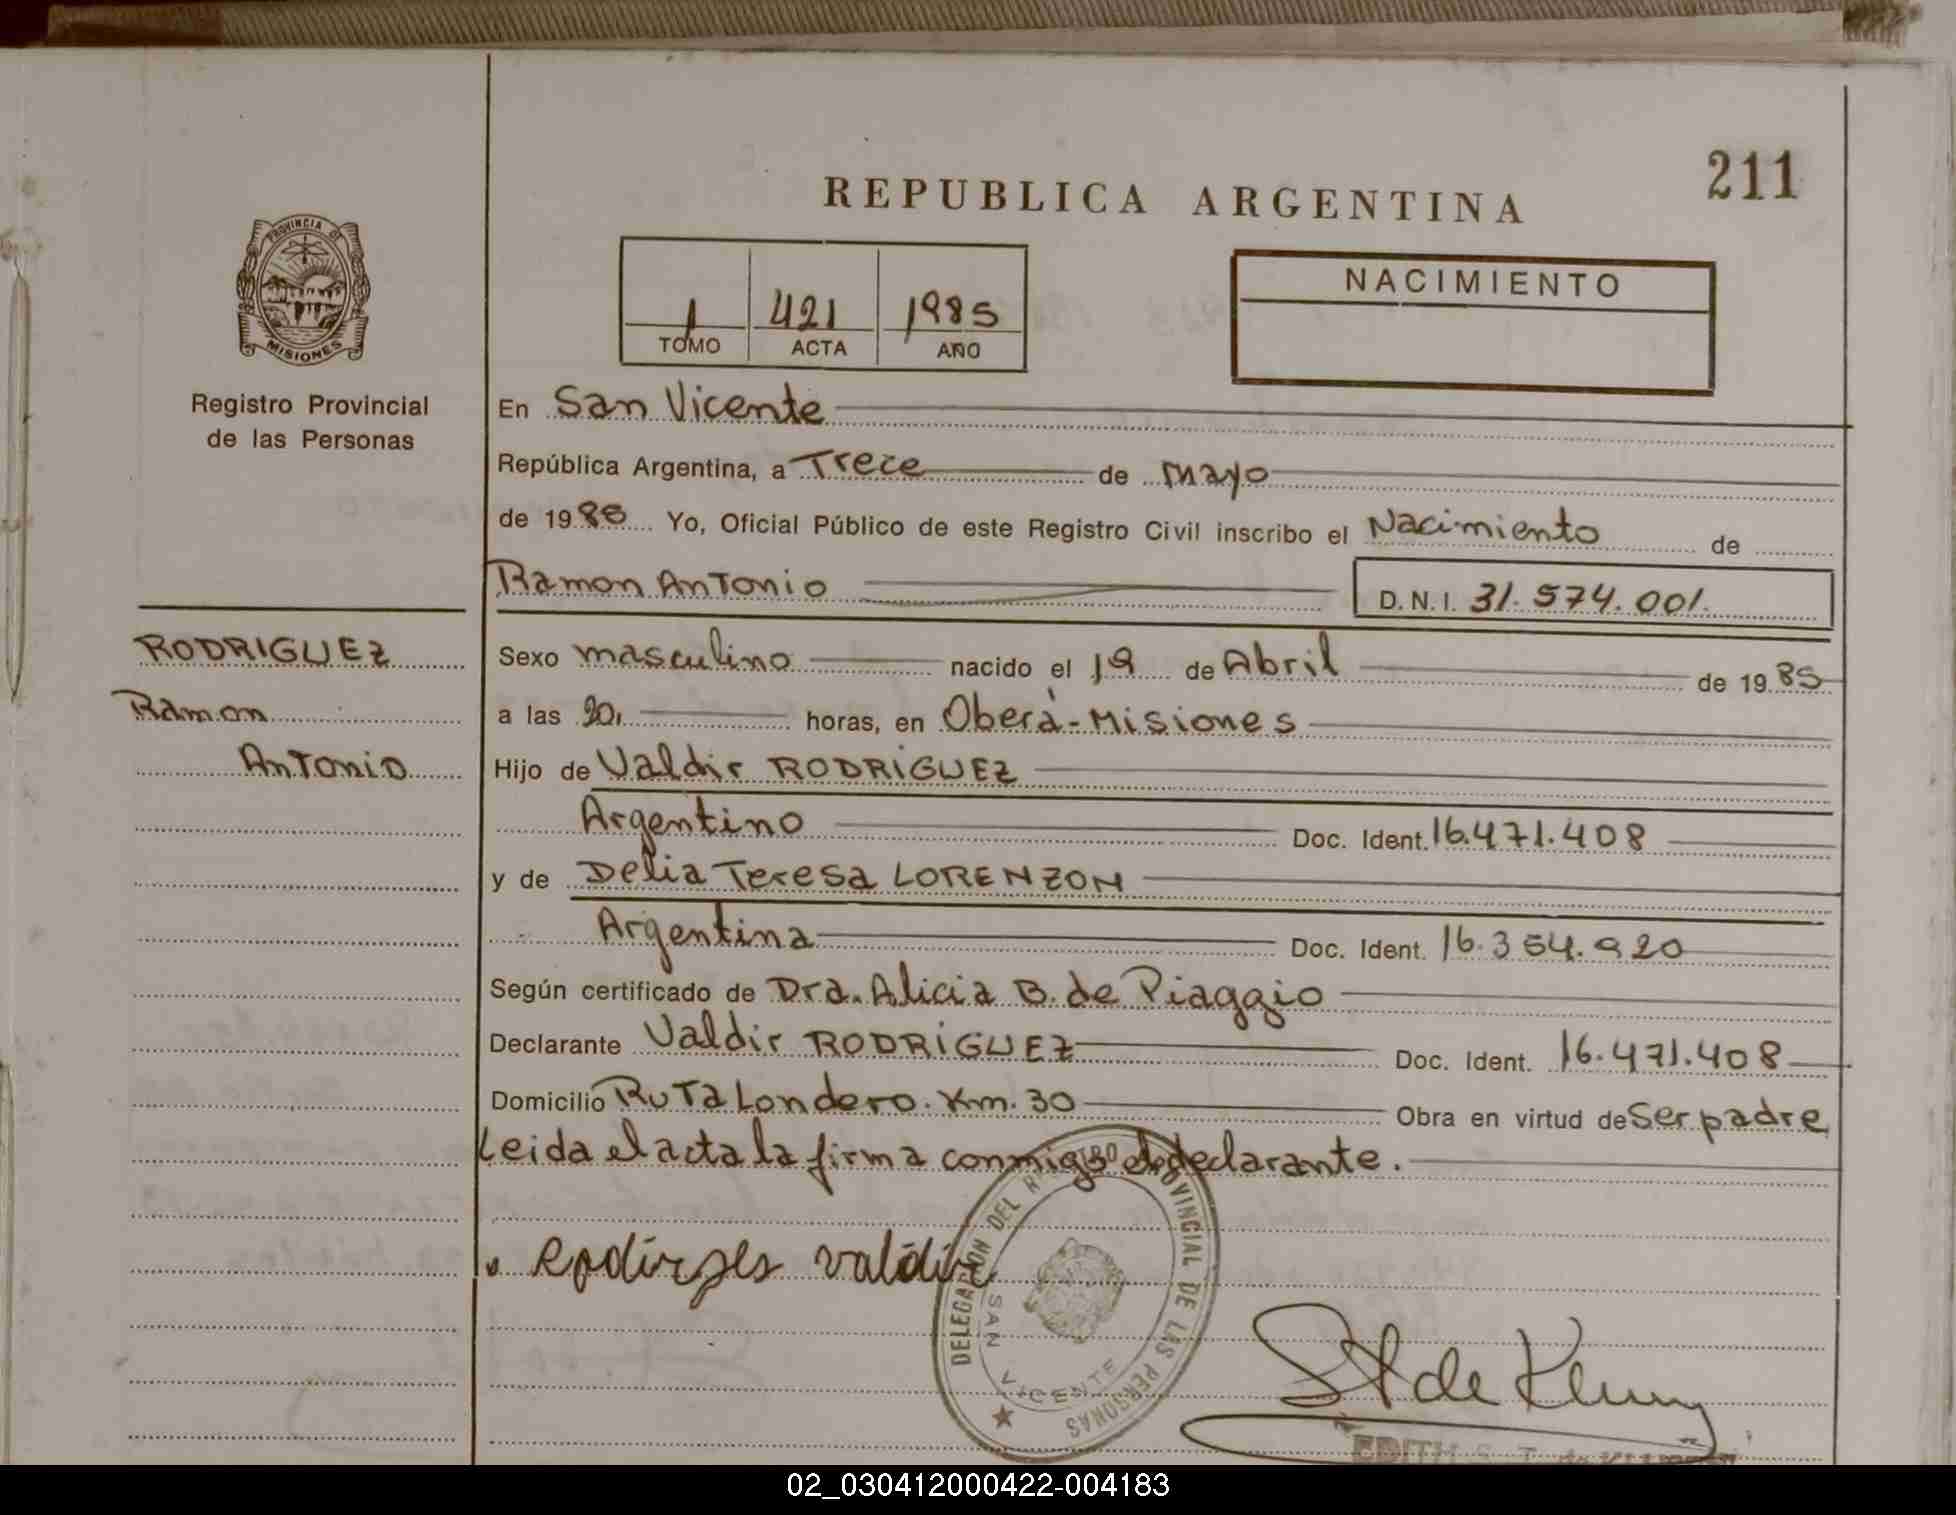 211
REPUBLICA ARGENTINA
PROVINCIA DE
MISIONES
Registro Provincial
de las Personas
1 421 1985
TOMO ACTA AÑO
NACIMIENTO
En San Vicente
República Argentina, a Trece de mayo
de 1985 Yo, Oficial Público de este Registro Civil inscribo el Nacimiento de
Ramon Antonio D.N.I. 31.574.001.
RODRIGUEZ
Ramon
Antonio
Sexo masculino nacido el 19 de Abril de 1985
a las 20, horas, en Oberá-Misiones
Hijo de Valdir RODRIGUEZ
Argentino Doc. Ident. 16.471.408
y de Delia Teresa LORENZON
Argentina Doc. Ident. 16.364.920
Según certificado de Dra. Alicia B. de Piaggio
Declarante Valdir RODRIGUEZ Doc. Ident. 16.471.408
Domicilio Ruta Londero. Km. 30 Obra en virtud de Ser padre
Leida el acta la firma conmigo el declarante.
DELEGACION DEL REGISTRO PROVINCIAL DE LAS PERSONAS
SAN VICENTE
Rodirges valdir
EDITH
02_030412000422-004183